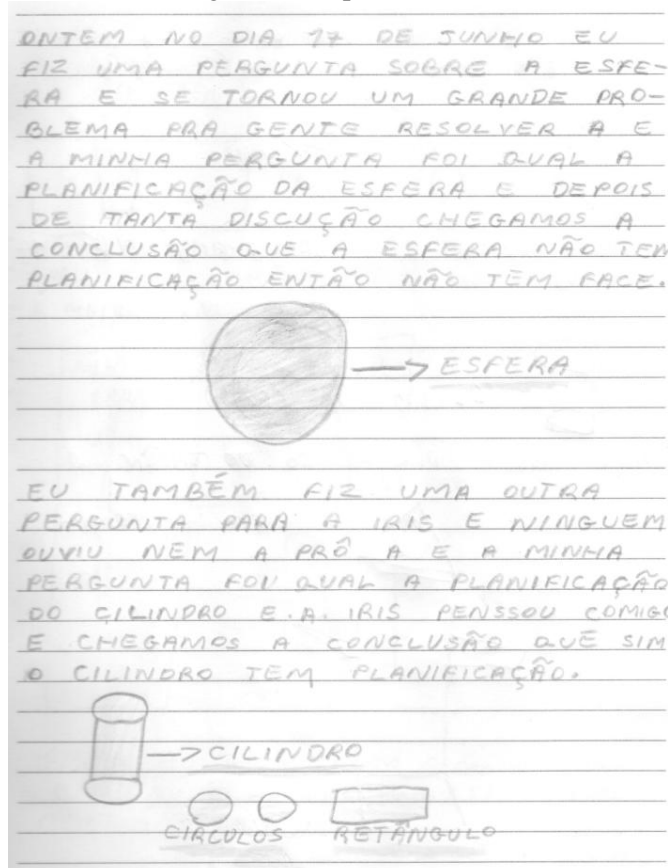 ONTEM NO DIA 17 DE JUNHO EU
FIZ UMA PERGUNTA SOBRE A ESFE-
RA E SE TORNOU UM GRANDE PRO-
BLEMA PRA GENTE RESOLVER A E
A MINHA PERGUNTA FOI QUAL A
PLANIFICAÇÃO DA ESFERA E DEPOIS
DE TANTA DISCUÇÃO CHEGAMOS A
CONCLUSÃO QUE A ESFERA NÃO TEM
PLANIFICAÇÃO ENTÃO NÃO TEM FACE.
ESFERA
EU TAMBÉM FIZ UMA OUTRA
PERGUNTA PARA A IRIS E NINGUEM
OUVIU NEM A PRÔ A E A MINHA
PERGUNTA FOI QUAL A PLANIFICAÇÃO
DO CILINDRO E.A. IRIS PENSSOU COMIGO
E CHEGAMOS A CONCLUSÃO QUE SIM
O CILINDRO TEM PLANIFICAÇÃO.
CILINDRO
CIRCULOS RETÂNGULO